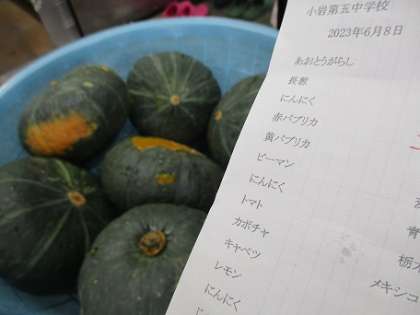 小岩第五中学校
2023年6月8日
あおとうがらし
長葱
にんにく
赤パプリカ
黄パプリカ
ピーマン
にんにく
トマト
カボチャ
キャベツ
レモン
にんにく
青
栃木
メキシコ